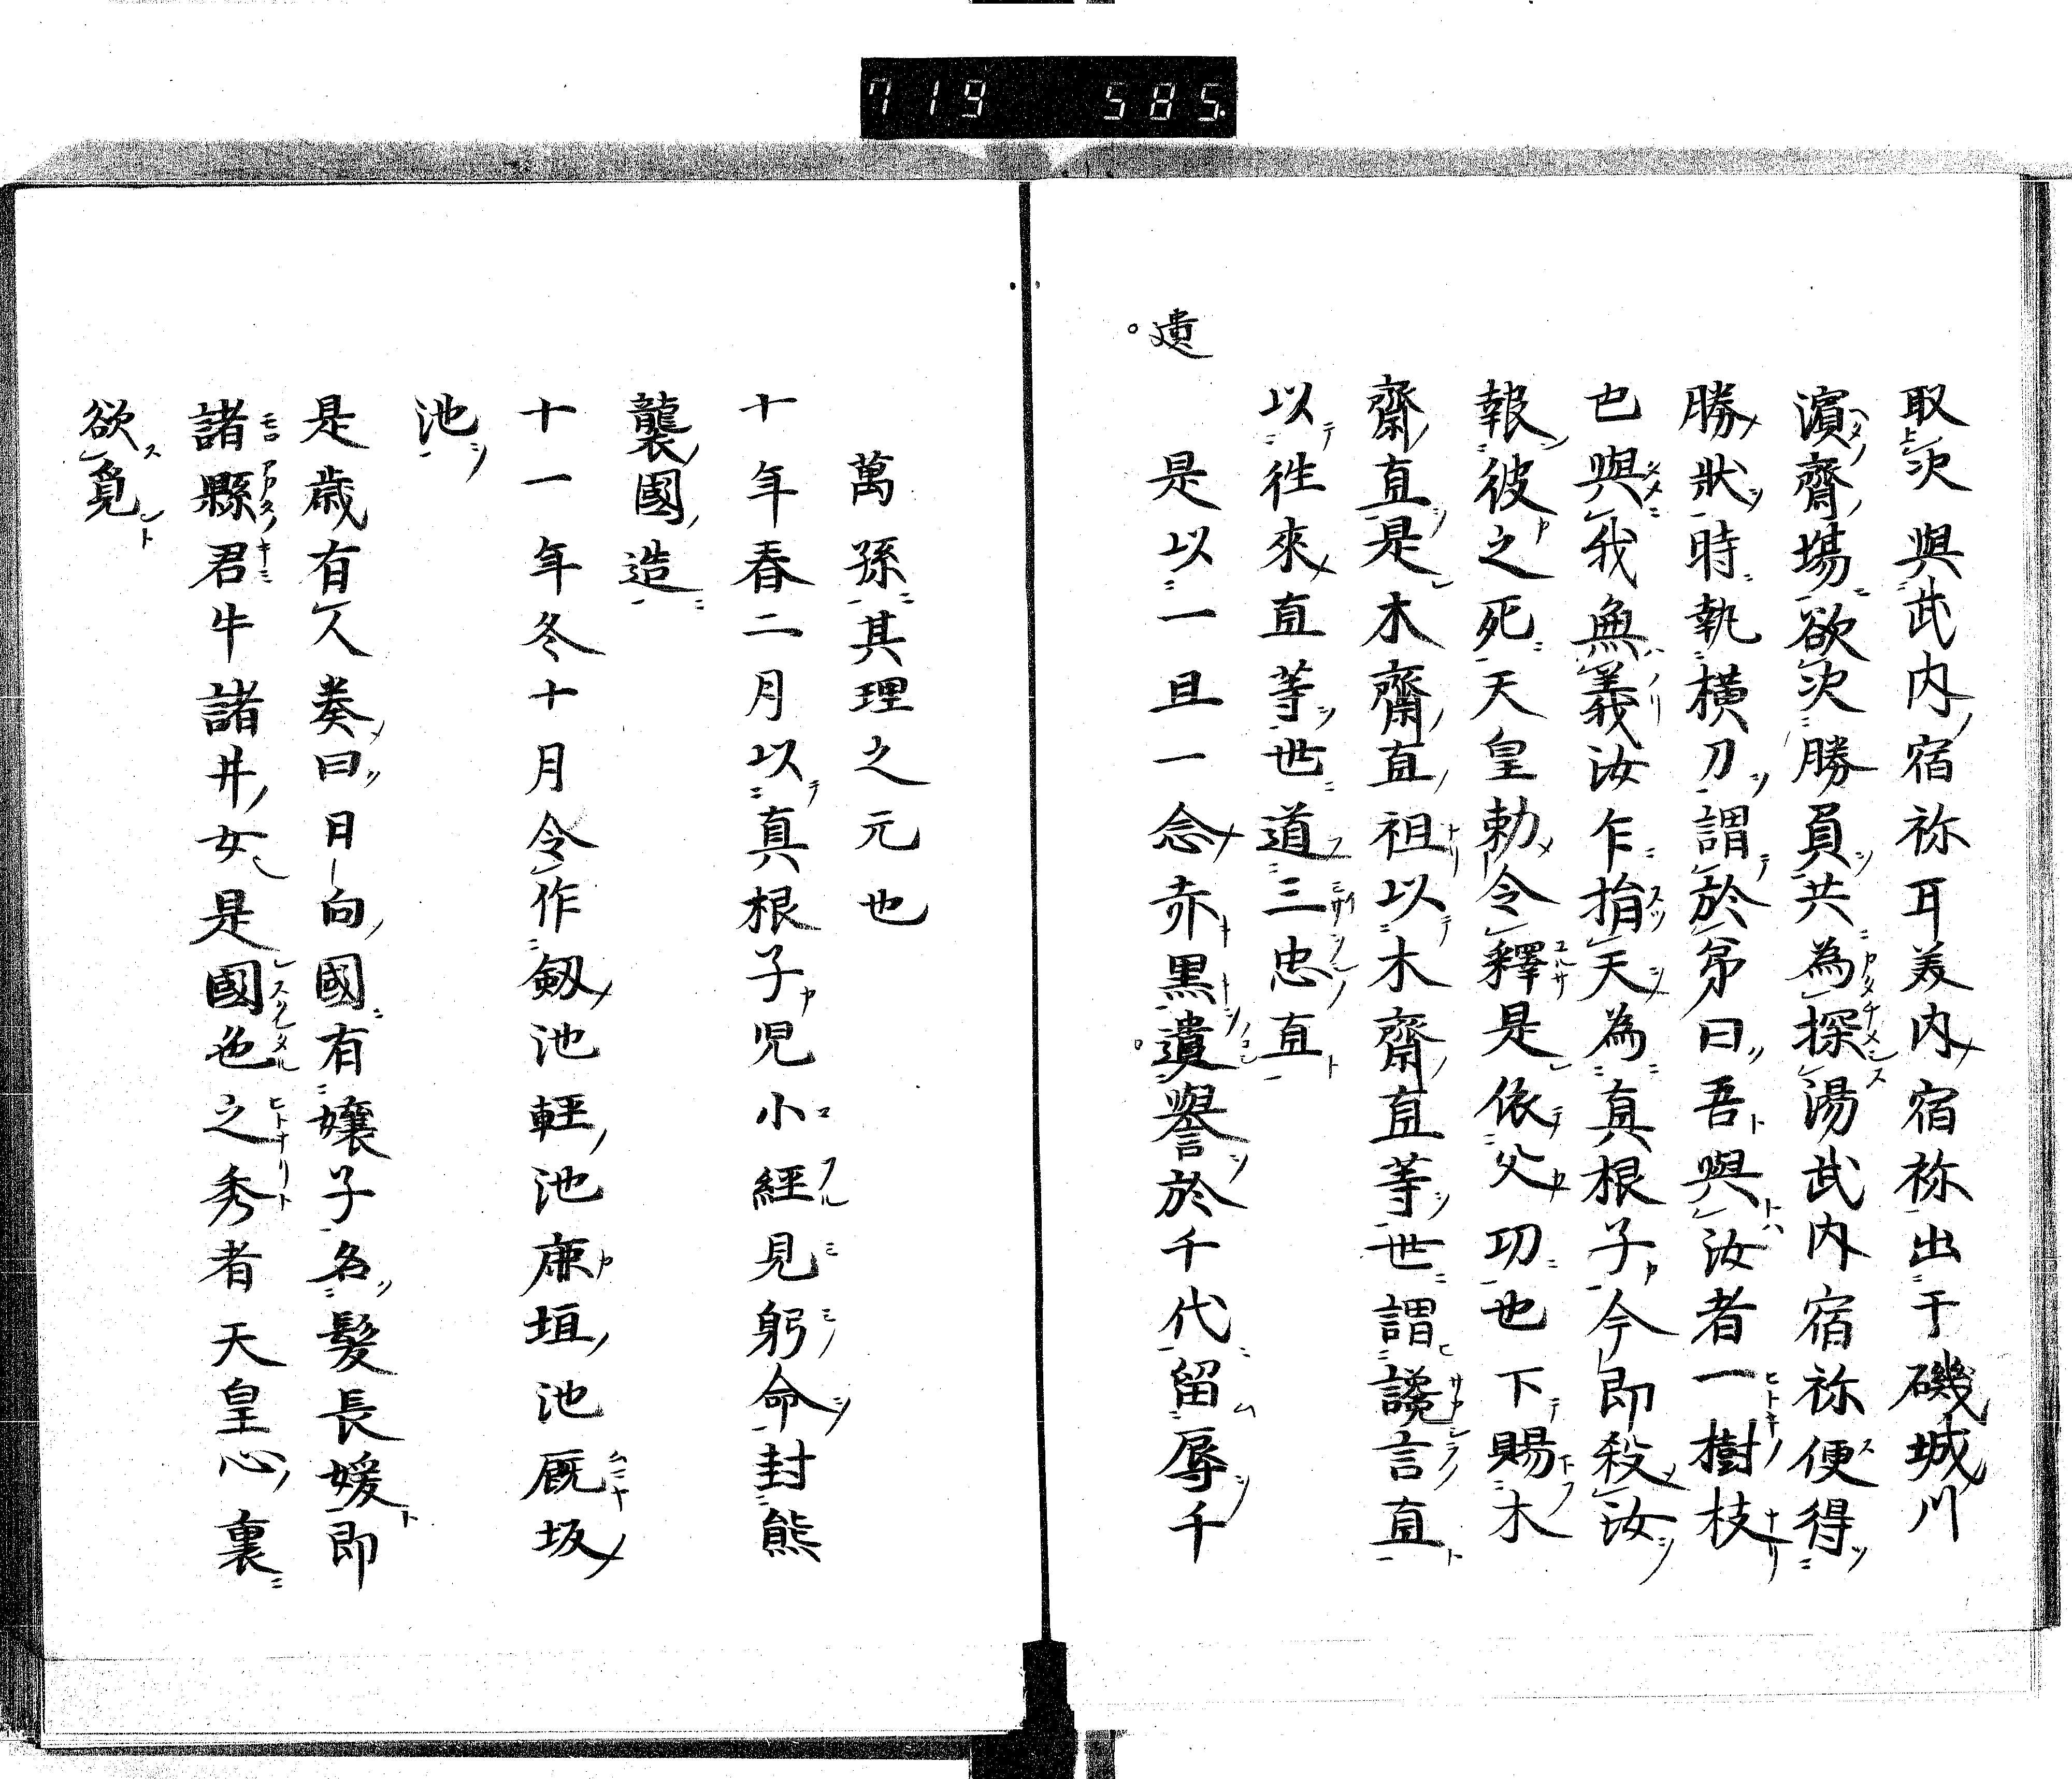 719 585.
取決與武内宿祢耳美内宿祢出于磯城川
濵齋場欲決勝員共為探湯武内宿祢便得
勝状時執横刀謂於㐧曰吾與汝者一樹枝
也與我無義汝乍捐天為真根子今即殺汝
報彼之死天皇勅令釋是依父功也下賜木
齋直是木齋直祖以木齋直等世謂讒言直
以徃來直等世道三忠直
遺
是以一旦一念赤黒遺譽於千代留辱千
萬孫其理之元也
十年春二月以真根子児小經見躬命封熊
襲國造
十一年冬十月令作劔池輕池鹿垣池厩坂
池
是歳有人奏曰日向國有嬢子名髪長媛即
諸縣君牛諸井女是國色之秀者天皇心裏
欲覓